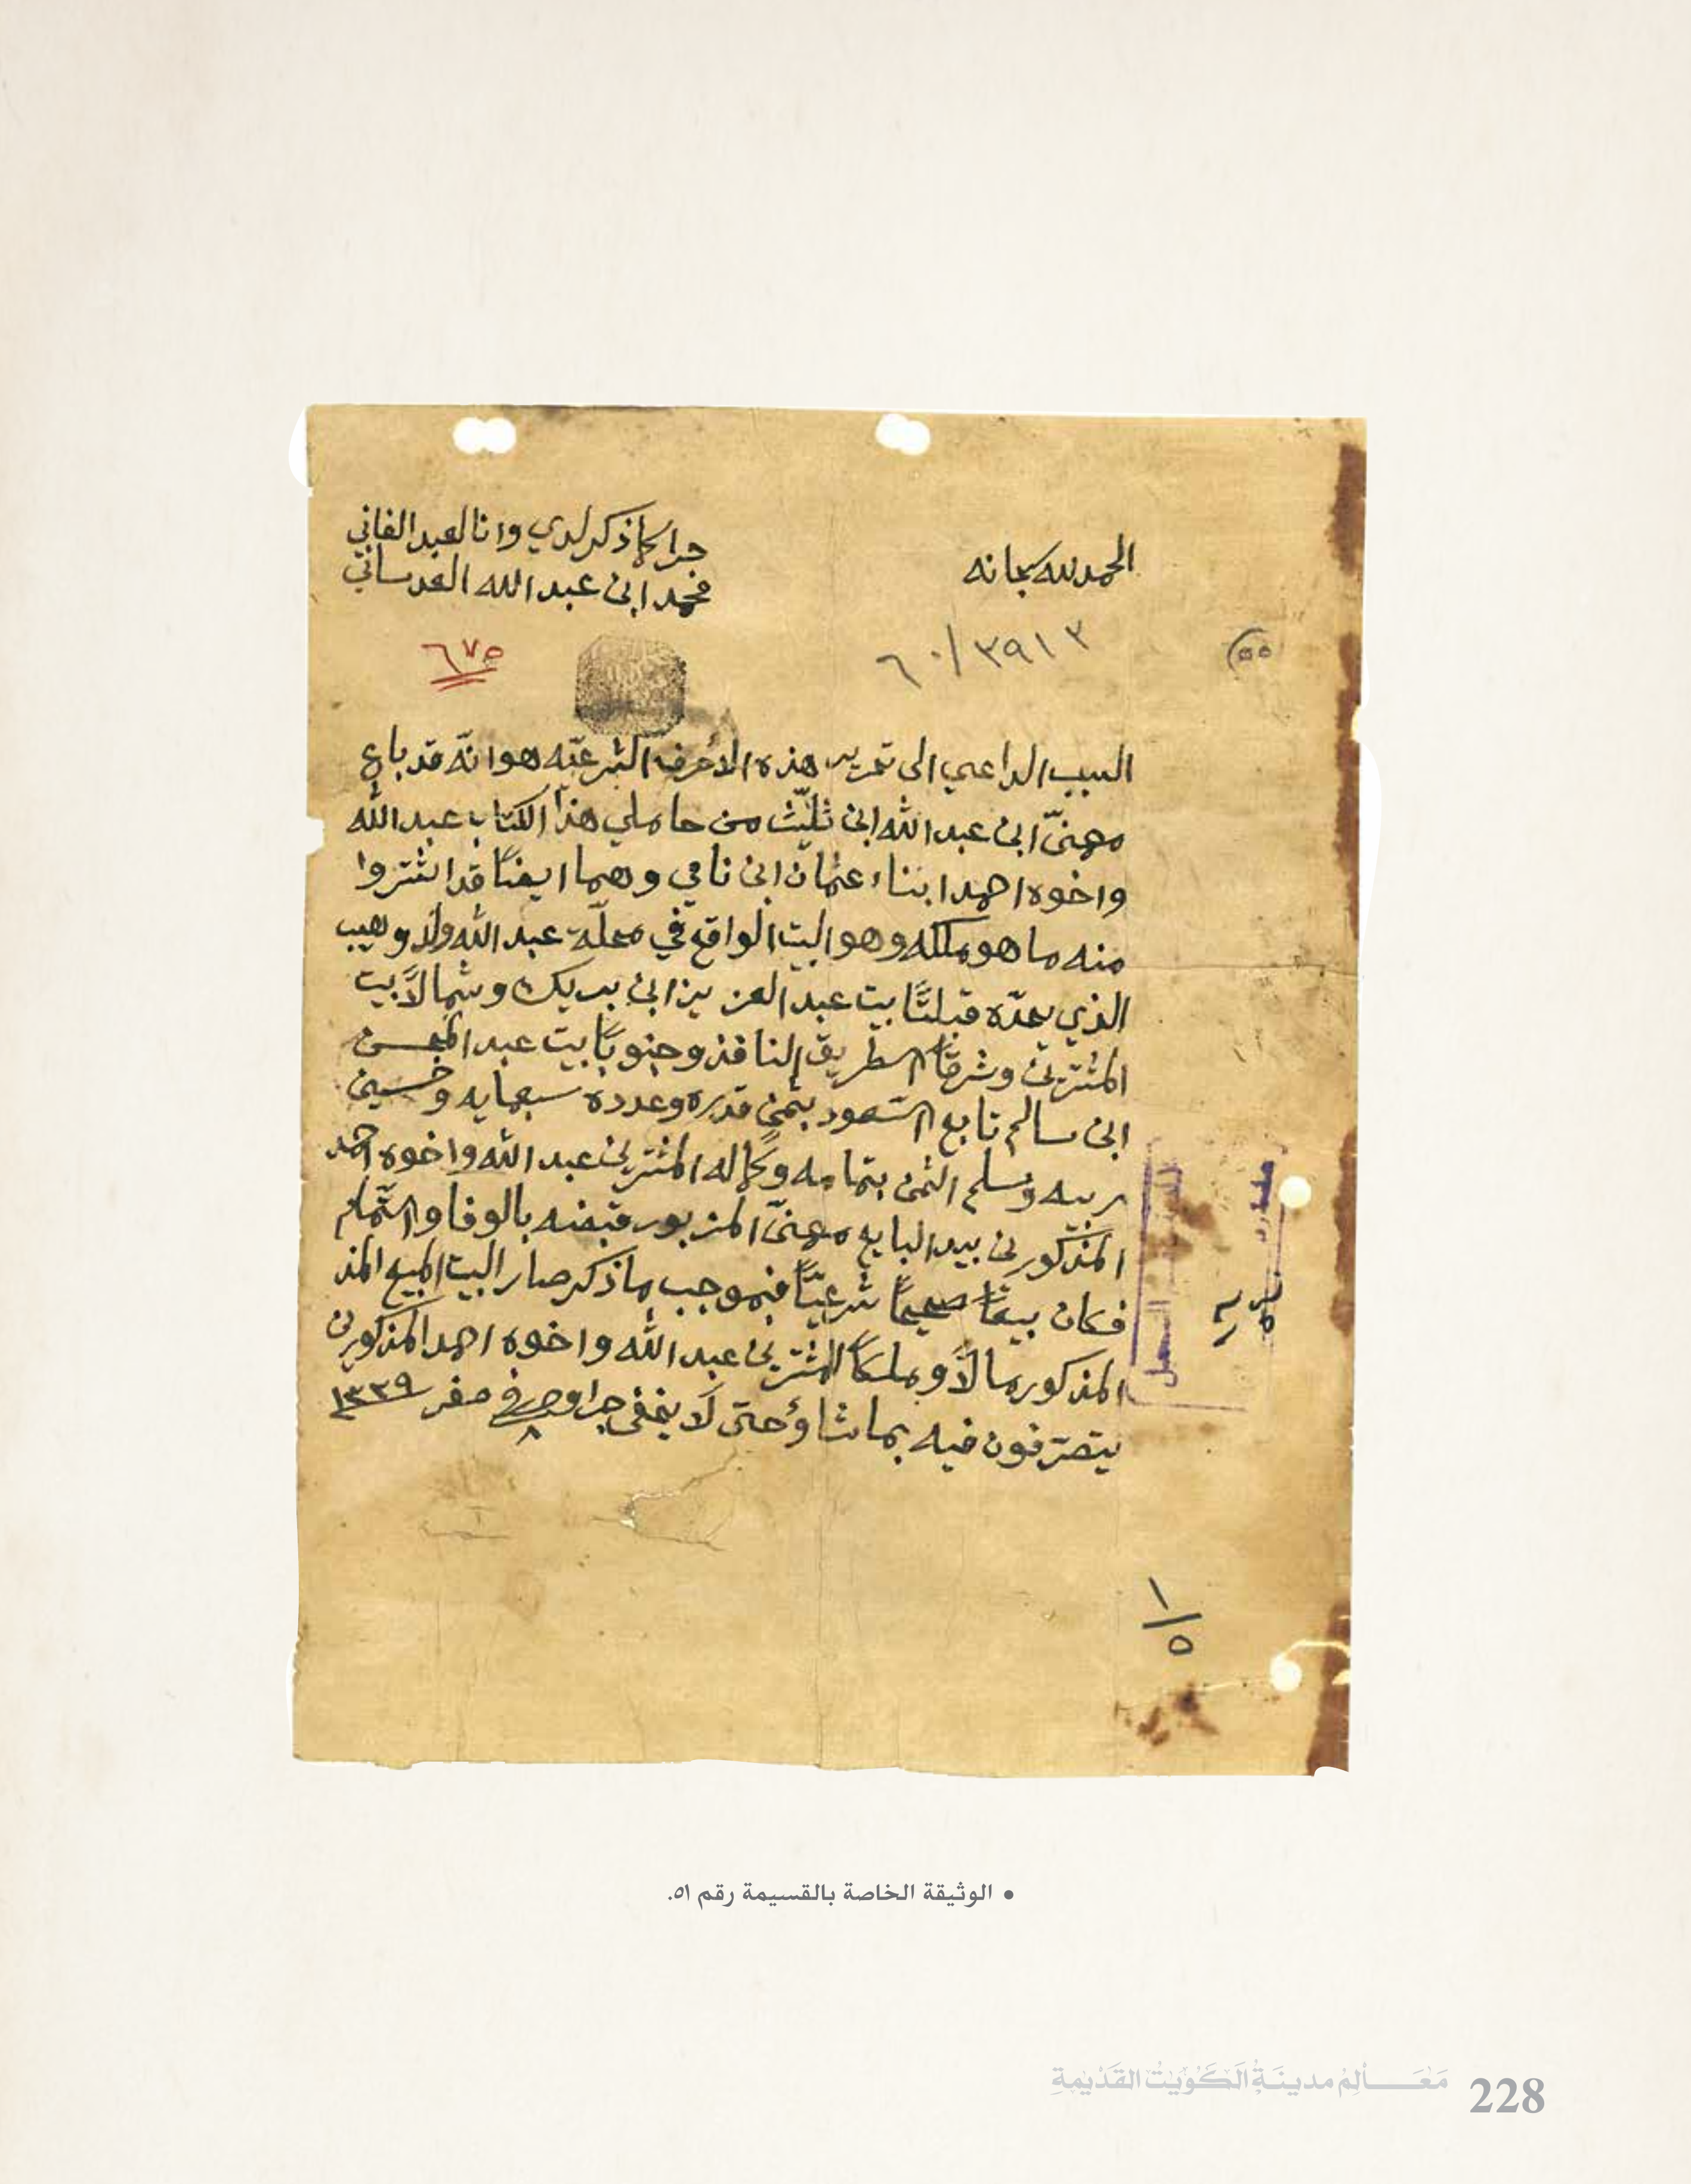 الحمد لله سبحانه
جرا كما ذكر لدي وانا العبد الفاني
محمد ابن عبد الله العدساني
٦٠/٣٩١٣
٦٧٥
٥٥
السبب الداعي الى تحرير هذه الاحرف الشرعيّه هو انّه قد باع
مهنّا ابن عبد الله ابن ثليّث من حاملي هذا الكتاب عبد الله
واخوه احمد ابناء عثمان ابن نامي وهما ايضاً قد اشتروا
منه ما هو ملكه وهو البيت الواقع في محلّة عبد الله ولد وهيب
الذي يحدّه قبلتًا بيت عبد العزيز ابن بريك وشمالاً بيت
المشترين وشرقًا الطريق النافذ وجنوبًا بيت عبد المحسن
ابن سالم تابع السّعود بثمنٍ قدره وعدده سبعمايه وخمسين
ربيه وسلم الثمن بتمامه وكماله المشترين عبد الله واخوه احمد
المذكورين بيد البايع مهنّا المزبور قبضه بالوفا والتّمام
فكان بيعًا صحيحًا شرعيّاً فبموجب ما ذكر صار البيت المبيع المذ
المذكور مالاً وملكاً للمشترين عبد الله واخوه احمد المذكورين
يتصرّفون فيه بما شاؤ حتى لا يخفى جرا وحرر في ٨ صفر ١٣٣٩
١/٥
• الوثيقة الخاصة بالقسيمة رقم ٥١.
مَعَالِمُ مدينَةِ الكُوَيْتْ القَدْيمةِ
228